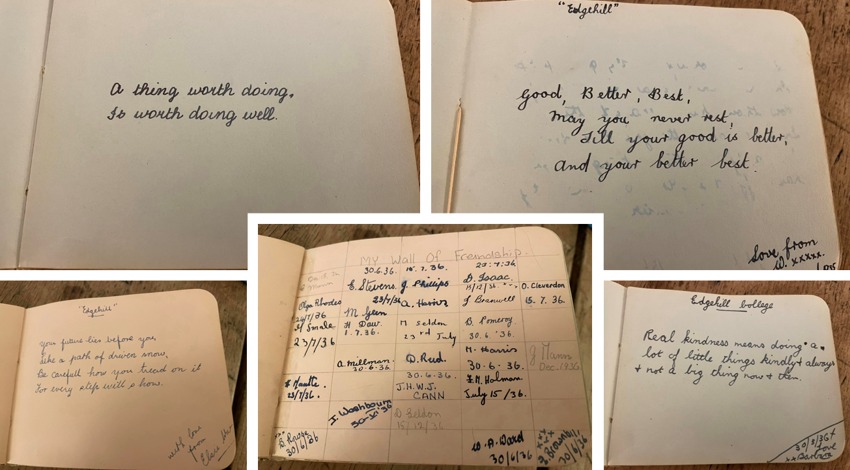 A thing worth doing,
Is worth doing well.
"Edgehill"
Good, Better, Best,
May you never rest,
Till your good is better,
And your better best.
Love from
"Edgehill"
you future lies before you
like a path of driven snow,
Be carefull how you tread on it
For every step will show.
with love
from
MY Wall Of Freindship.
30.6.36.
E. Stevens.
J. Phillips
23/7/36
A. Harris
D. Isaac.
J. Bramwell
O. Cleverdon
15.7.36.
Olga Rhodes
24/7/36
23/7/36
M. Glen
H. Daw.
1.7.36.
M Seldon
23rd July
B. Pomeroy
30.6.36
A. Millman.
30.6.36
D. Reed.
30.6.36.
M. Harris
30.6.36.
J Mann
Dec. 1936
23/7/36.
J.H.W.J.
CANN
E.M. Holman
July 15/36.
I. Washbourn
D Seldon
15/12/36
30/6/36
W.A. Ward
30/6/36
30/6/36
Edgehill College
Real kindness means doing a
lot of little things kindly & always
& not a big thing now & then.
Love
Barbara